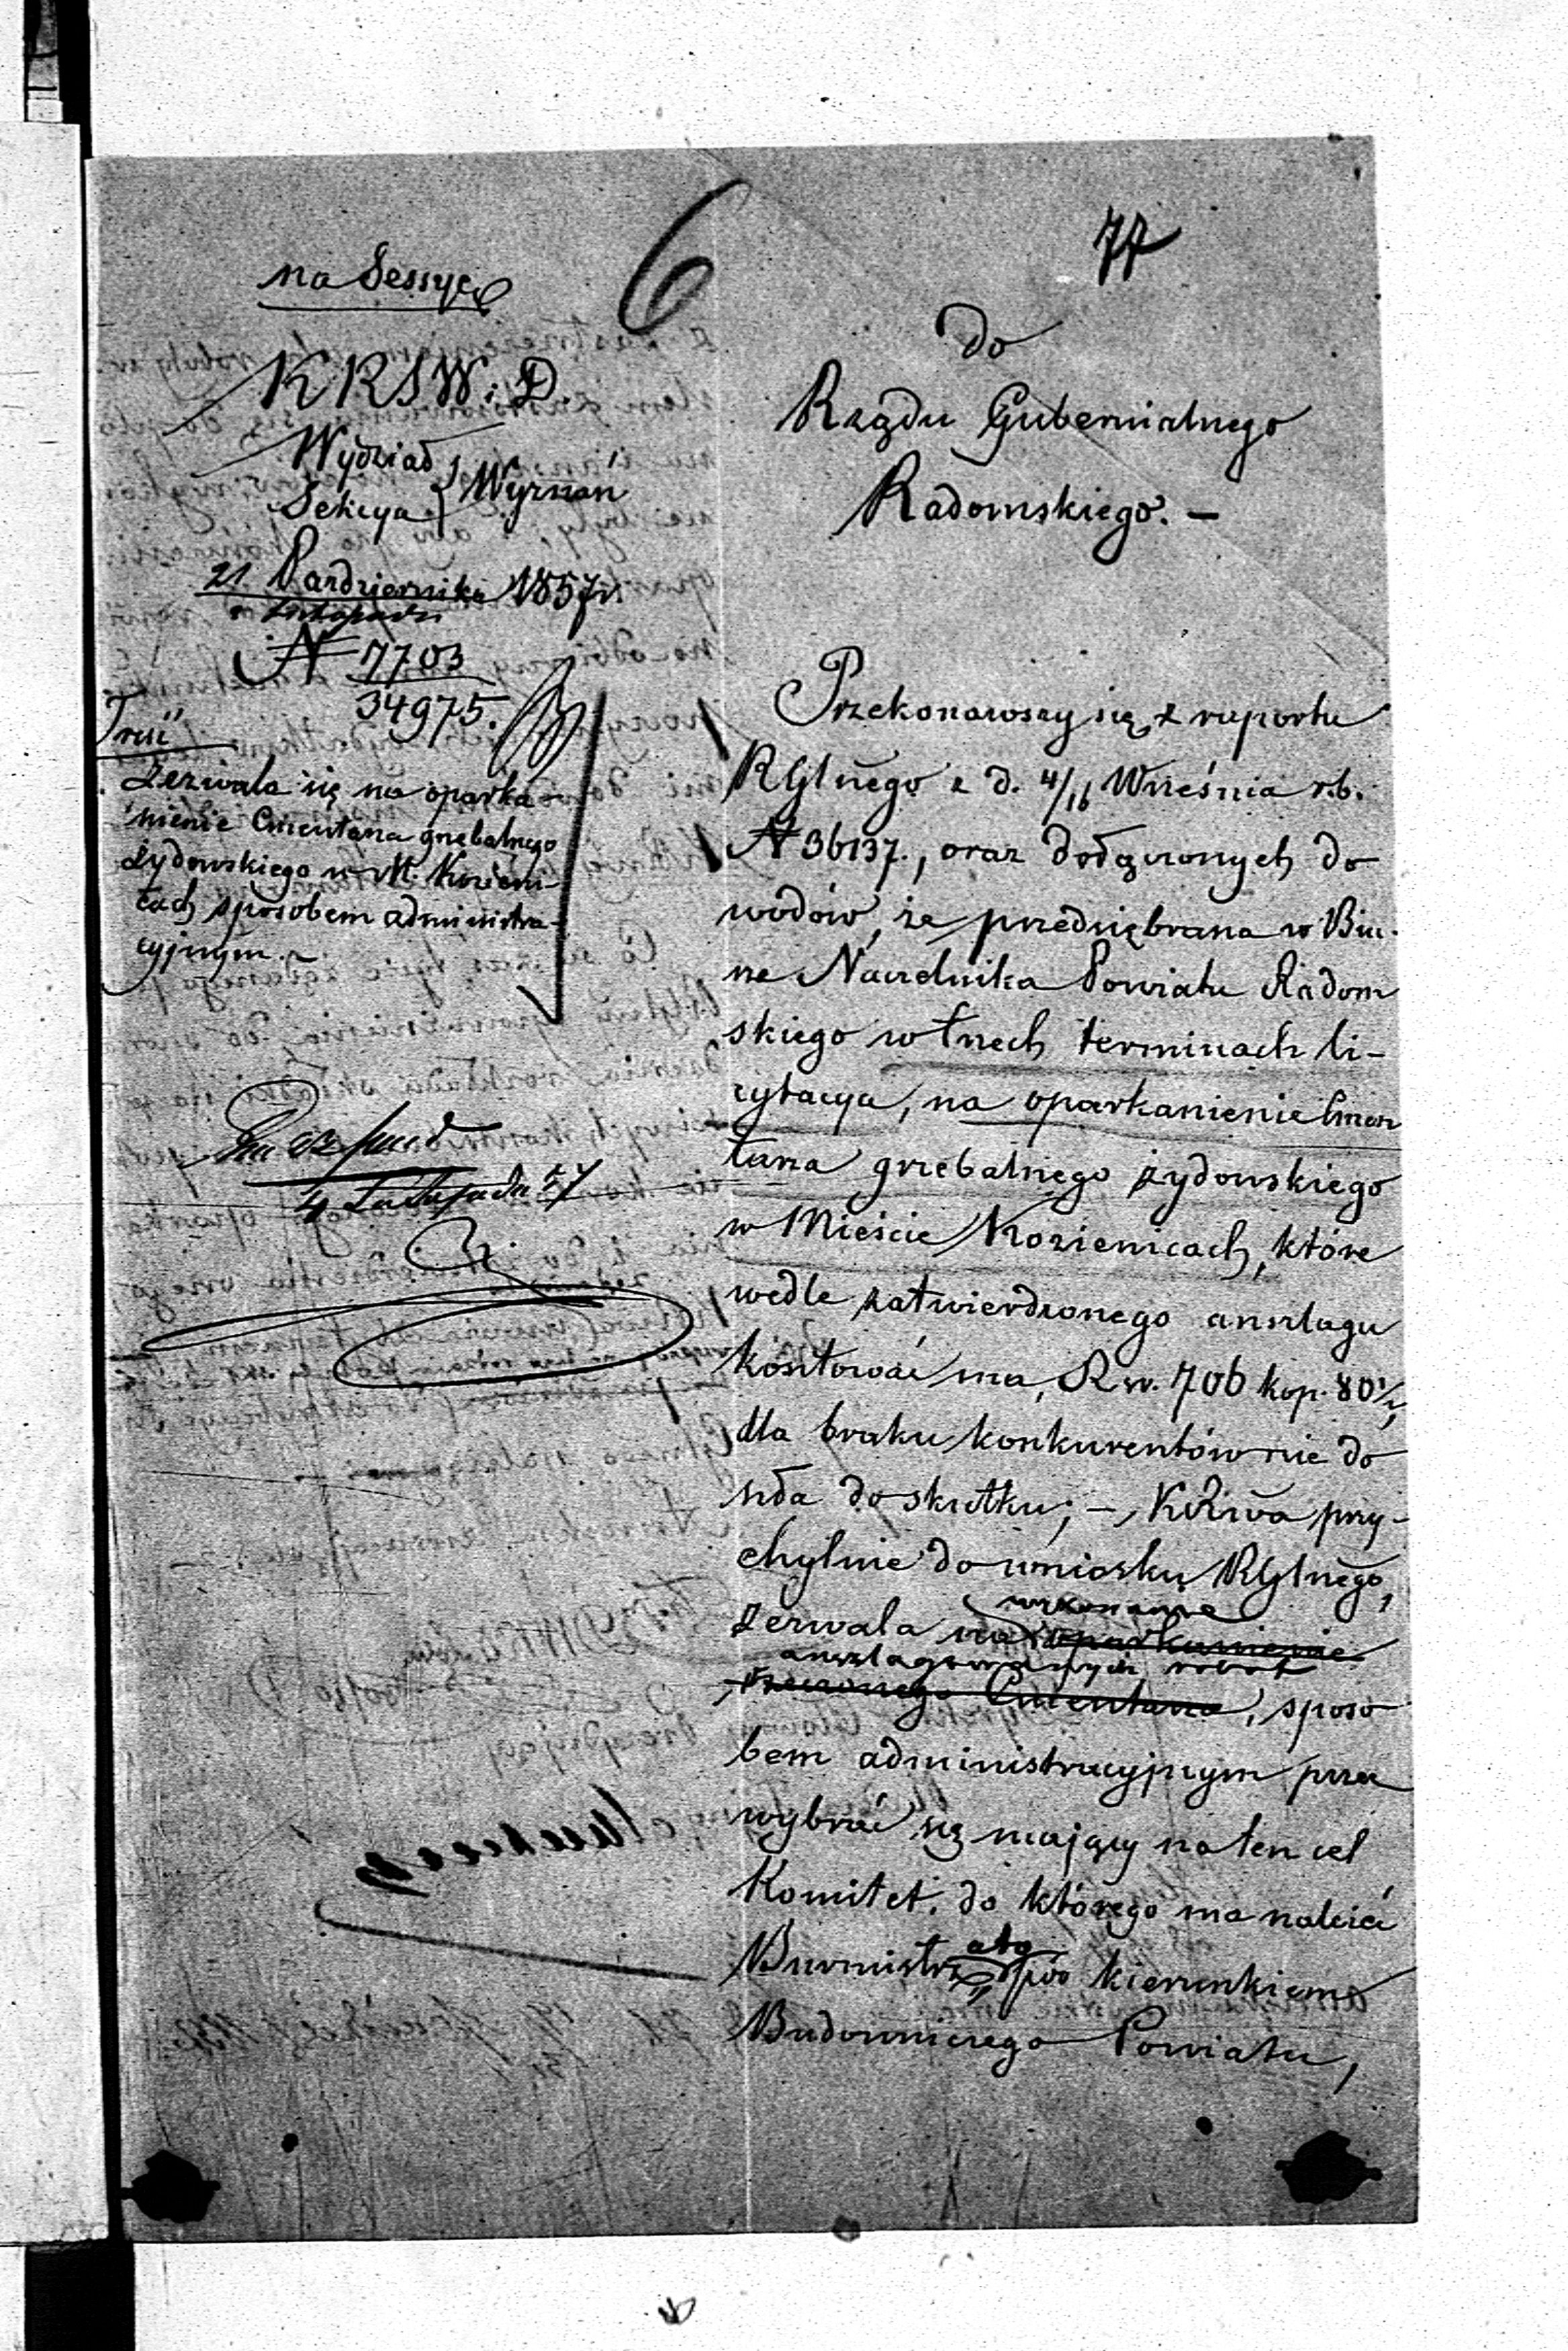 6
77
na Sessyę
KRSW. i D.
Wydział
Sekcya } Wyznań
21 Października 1857 r.
Listopada
N 7703
34975.
Treść
Zezwala się na oparka
nienie Cmentarza grzebalnego
żydowskiego w M. Kozieni-
cach sposobem administra-
cyjnym.
4 Listopada 57
do
Rządu Gubernialnego
Radomskiego. —
Przekonawszy się z raportu
RGlnego z d. 4/16 Września r.b.
N 36137., oraz dołączonych do
wodów, że przedsiębrana w Biu-
rze Naczelnika Powiatu Radom
skiego w trzech terminach li-
cytacya, na oparkanienie Cmen
tarza grzebalnego żydowskiego
w Mieście Kozienicach, które
wedle zatwierdzonego anszlagu
kosztować ma, Rsr. 706 kop. 80½,
dla braku konkurentów nie do
szła do skutku; — KRwa przy-
chylnie do wniosku RGlnego,
zezwala na oparkanienie
wykonanie
anszlagowanych robót
rzeczonego Cmentarza, sposo
bem administracyjnym przez
wybrać się mający na ten cel
Komitet, do którego ma należeć
Burmistrz, pod kierunkiem
Budowniczego Powiatu,